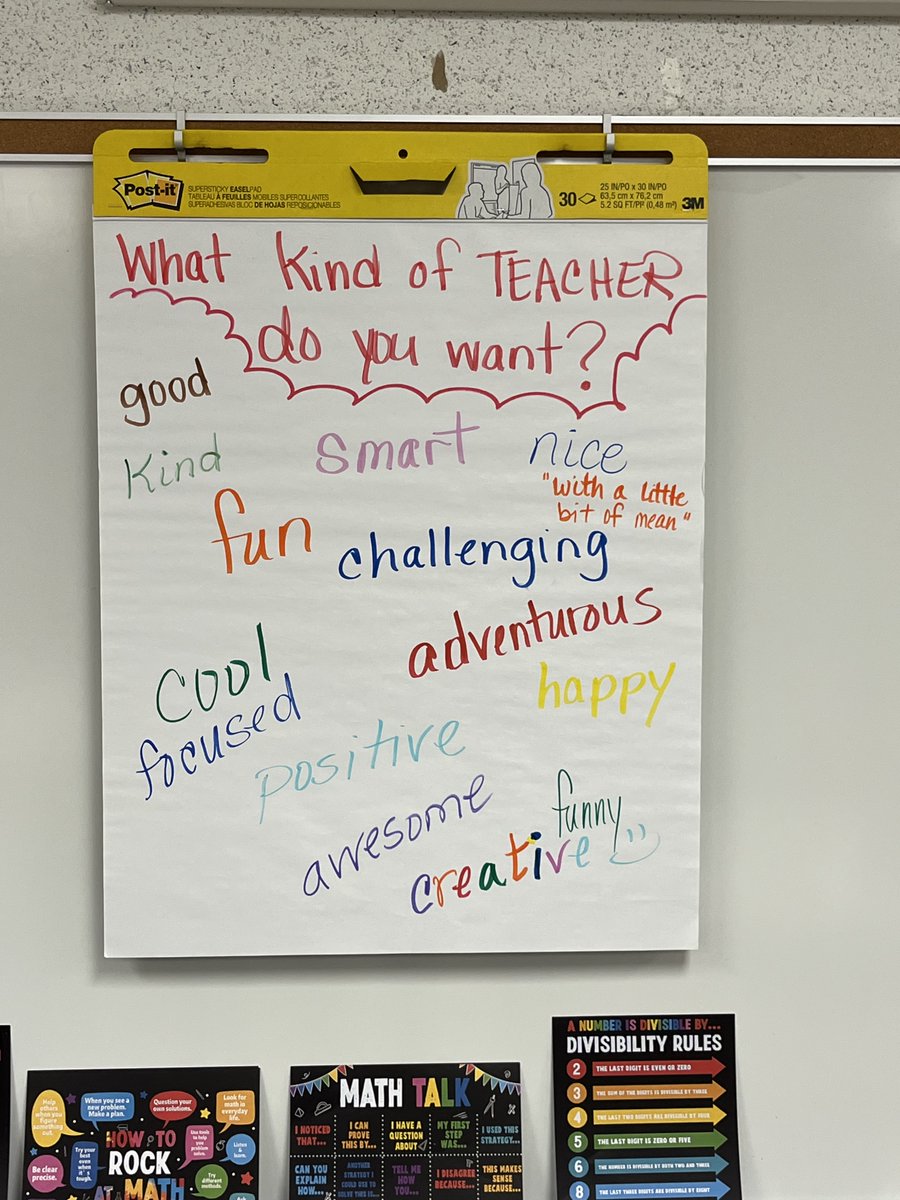 Post-it
SUPERSTICKY EASEL PAD
TABLEAU À FEUILLES MOBILES SUPERCOLLANTES
SUPERADHESIVAS BLOC DE HOJAS REPOSICIONABLES
30
25 IN/PO x 30 IN/PO
63,5 cm x 76,2 cm
5.2 SQ FT/PI² (0,48 m²)
3M
What Kind of TEACHER
do you want?
good
Kind
smart
nice
"with a little
bit of mean"
fun
challenging
adventurous
cool
happy
focused
positive
awesome
funny
creative
A NUMBER IS DIVISIBLE BY...
DIVISIBILITY RULES
2 THE LAST DIGIT IS EVEN OR ZERO
3 THE SUM OF THE DIGITS IS DIVISIBLE BY THREE
4 THE LAST TWO DIGITS ARE DIVISIBLE BY FOUR
5 THE LAST DIGIT IS ZERO OR FIVE
6 THE NUMBER IS DIVISIBLE BY BOTH TWO AND THREE
8 THE LAST THREE DIGITS ARE DIVISIBLE BY EIGHT
MATH TALK
I NOTICED THAT...
I CAN PROVE THIS BY...
I HAVE A QUESTION ABOUT
MY FIRST STEP WAS...
I USED THIS STRATEGY...
CAN YOU EXPLAIN HOW...
ANOTHER STRATEGY I COULD USE TO SOLVE THIS IS...
TELL ME HOW YOU...
I DISAGREE BECAUSE...
THIS MAKES SENSE BECAUSE...
Help others when you figure something out.
When you see a new problem. Make a plan.
Question your own solutions.
Look for math in everyday life.
HOW TO
ROCK
AT MATH
Try your best even when it's tough.
Use tools to help you problem solve.
Listen & learn.
Be clear precise.
Try different methods.